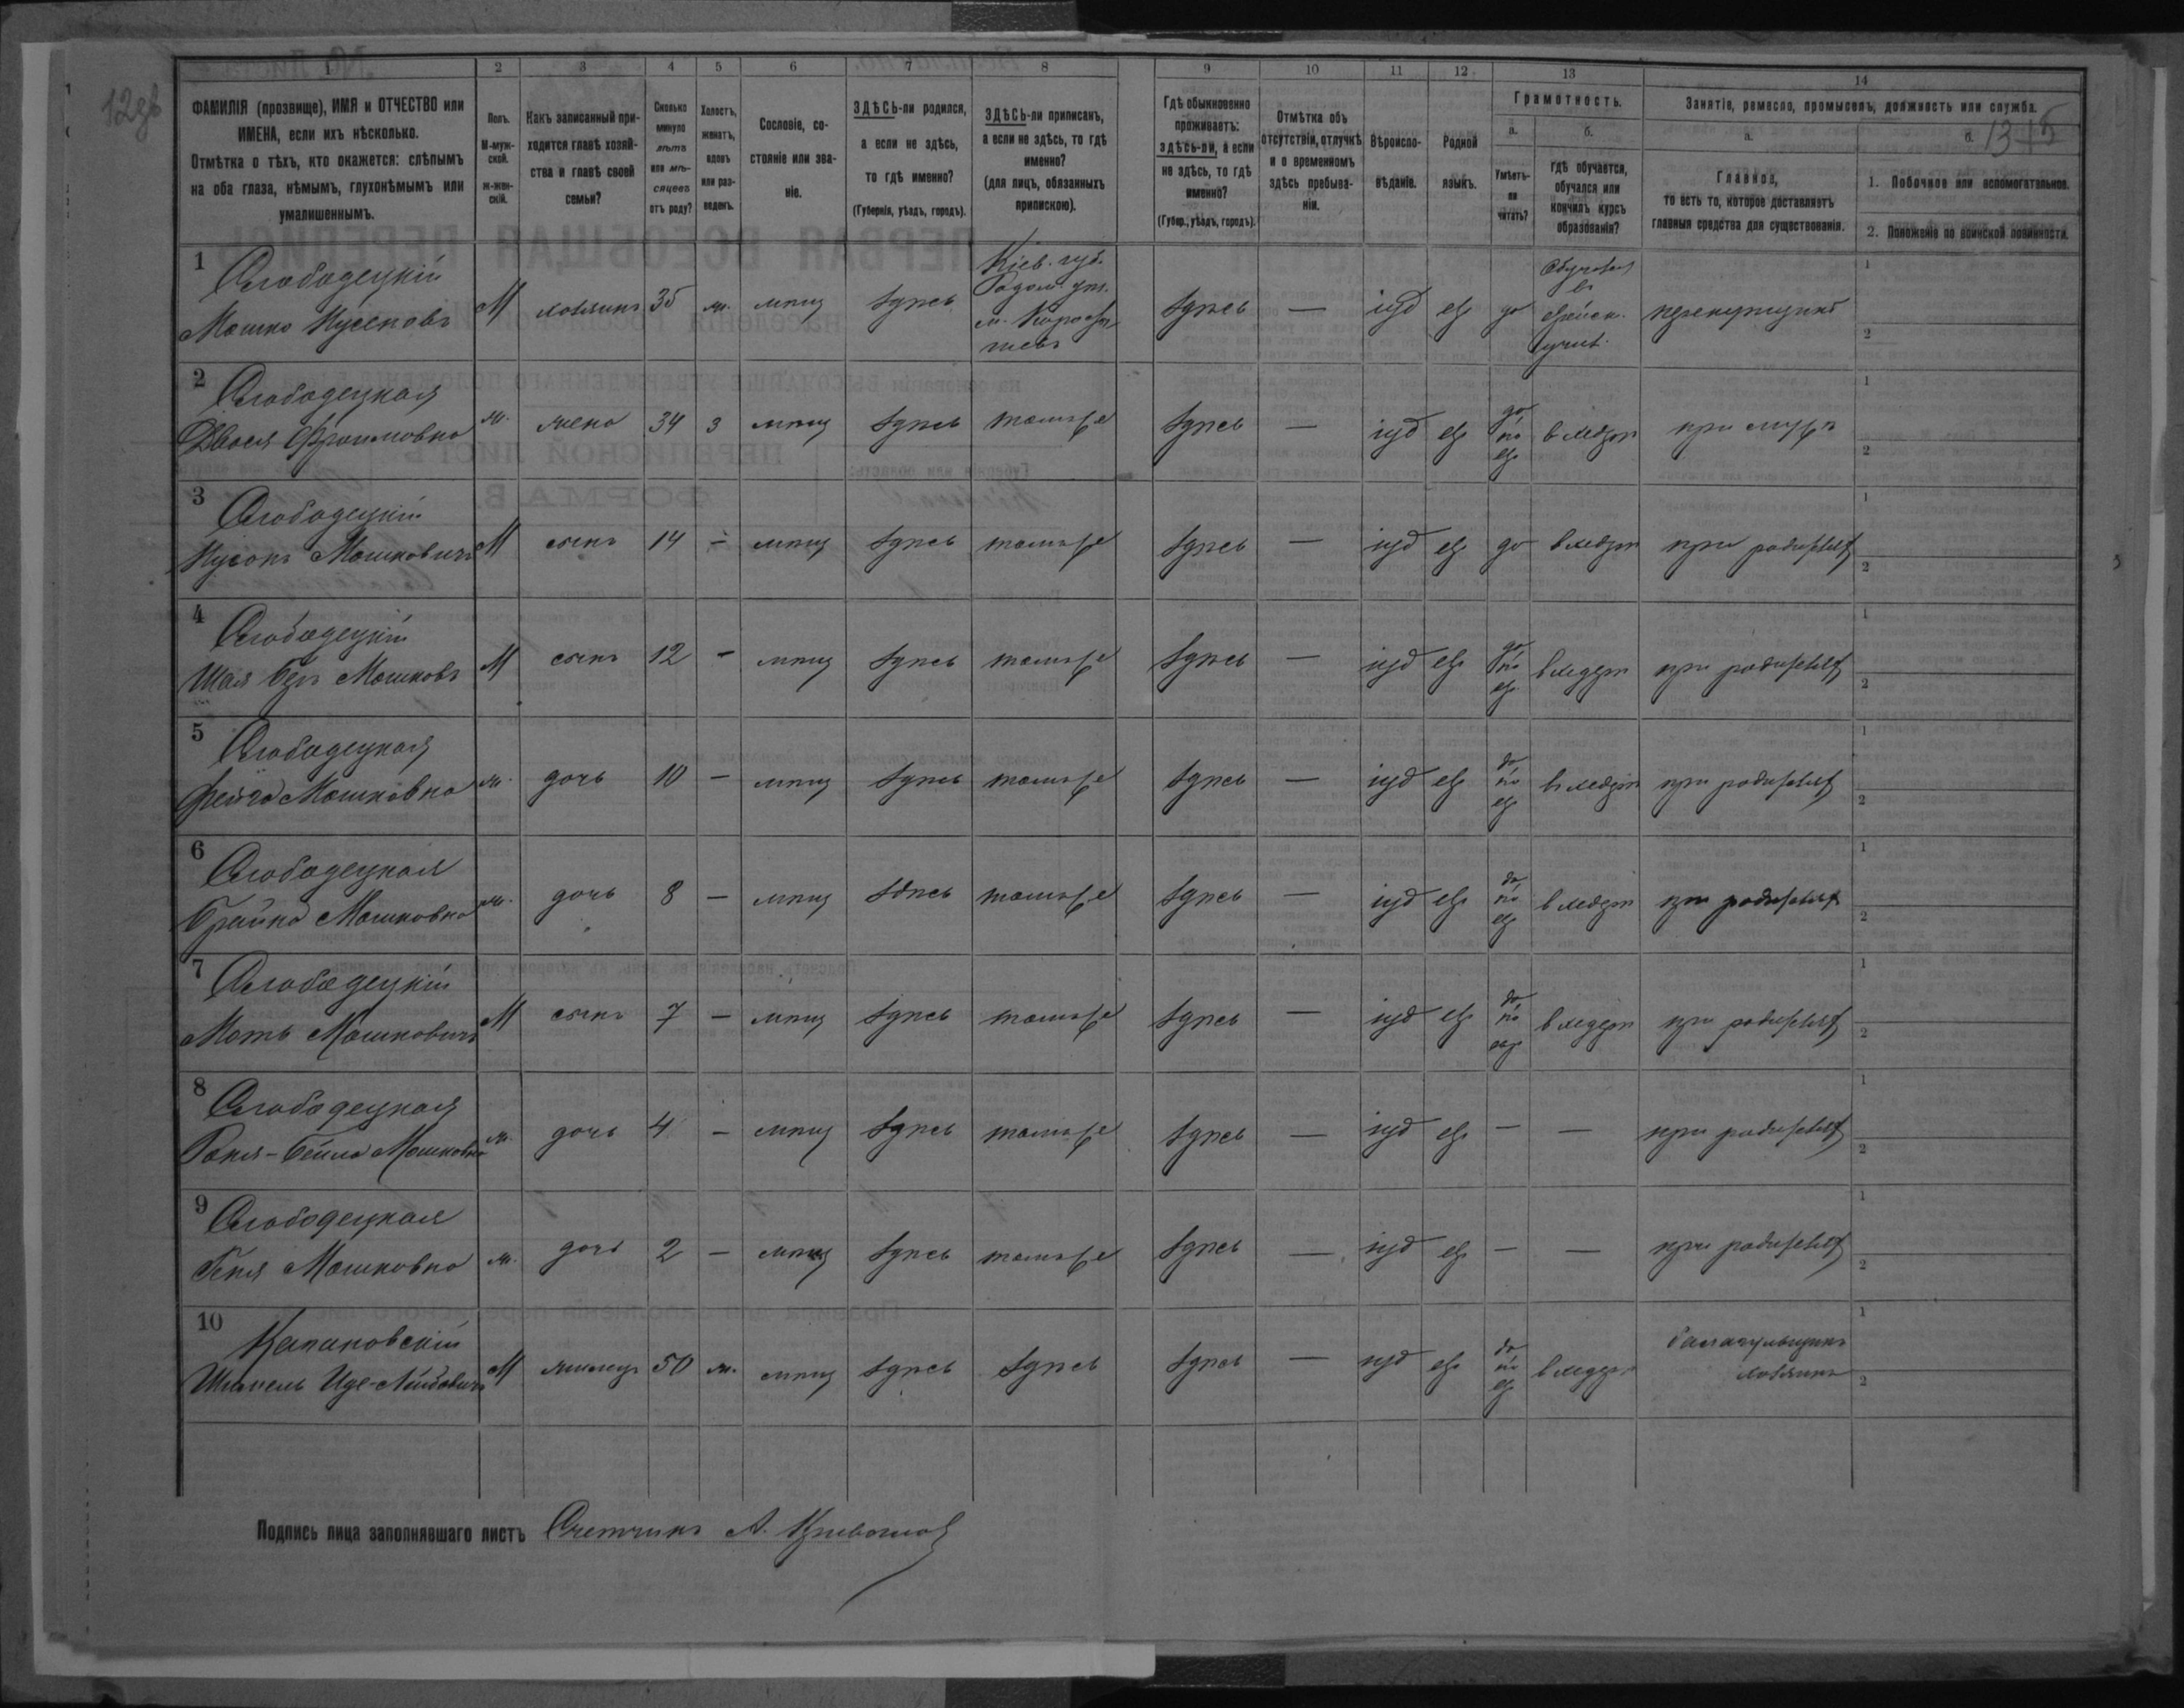 12зв
13 5
1 2 3 4 5 6 7 8 9 10 11 12 13 14
ФАМИЛІЯ (прозвище), ИМЯ и ОТЧЕСТВО или
ИМЕНА, если ихъ нѣсколько.
Отмѣтка о тѣхъ, кто окажется: слѣпымъ
на оба глаза, нѣмымъ, глухонѣмымъ или
умалишеннымъ.
Полъ.
М-муж-
ской.
ж-жен-
скій.
Какъ записанный при-
ходится главѣ хозяй-
ства и главѣ своей
семьи?
Сколько
минуло
лѣтъ
или мѣ-
сяцевъ
отъ роду?
Холостъ,
женатъ,
вдовъ
или раз-
веденъ.
Сословіе, со-
стояніе или зва-
ніе.
ЗДѢСЬ-ли родился,
а если не здѣсь,
то гдѣ именно?
(Губернія, уѣздъ, городъ).
ЗДѢСЬ-ли приписанъ,
а если не здѣсь, то гдѣ
именно?
(для лицъ, обязанныхъ
припискою).
Гдѣ обыкновенно
проживаетъ:
здѣсь-ли, а если
не здѣсь, то гдѣ
именно?
(Губер., уѣздъ, городъ).
Отмѣтка объ
отсутствіи, отлучкѣ
и о временномъ
здѣсь пребыва-
ніи.
Вѣроиспо-
вѣданіе.
Родной
языкъ.
Грамотность.
а.
Умѣетъ-
ли
читать?
б.
гдѣ обучается,
обучался или
кончилъ курсъ
образованія?
Занятіе, ремесло, промыселъ, должность или служба.
а.
Главное,
то есть то, которое доставляетъ
главныя средства для существованія.
б.
1. Побочное или вспомогательное.
2. Положеніе по воинской повинности.
1 Слободецкій
Мошко Нусеновъ М хозяинъ 35 ж. мѣщ здѣсь
Кіев. губ.
Радом. уѣз.
м. Коросты-
шевъ
здѣсь — іуд евр да
Обучался
въ
еврейск.
учил.
перекупщикъ
1
2
2 Слободецкая
Двося Фроимовна ж. жена 34 з мѣщ здѣсь тамъ же здѣсь — іуд евр да по евр въ хедерѣ при мужѣ
1
2
3 Слободецкій
Нусонъ Мошковичъ М сынъ 14 – мѣщ здѣсь тамъ же здѣсь — іуд евр да въ хедерѣ при родителях
1
2
4 Слободецкій
Шая Беръ Мошковъ М сынъ 12 – мѣщ здѣсь тамъ же здѣсь — іуд евр да по евр въ хедерѣ при родителях
1
2
5 Слободецкая
Фейга Мошковна ж. дочь 10 – мѣщ здѣсь тамъ же здѣсь — іуд евр да по евр въ хедерѣ при родителях
1
2
6 Слободецкая
Брайна Мошковна ж. дочь 8 – мѣщ здѣсь тамъ же здѣсь — іуд евр да по евр въ хедерѣ при родителях
1
2
7 Слободецкій
Моть Мошковичъ М сынъ 7 – мѣщ здѣсь тамъ же здѣсь — іуд евр да по евр въ хедерѣ при родителях
1
2
8 Слободецкая
Бейла Мошковна ж. дочь 4 – мѣщ здѣсь тамъ же здѣсь — іуд евр – — при родителях
1
2
9 Слободецкая
Геня Мошковна ж. дочь 2 – мѣщ здѣсь тамъ же здѣсь — іуд евр – — при родителях
1
2
10 Капановскій
Лейбовичъ М жилец 50 ж. мѣщ здѣсь здѣсь здѣсь — іуд евр да по евр въ хедерѣ
балагульщикъ
хозяинъ
1
2
Подпись лица заполнявшаго листъ Счетчикъ А.